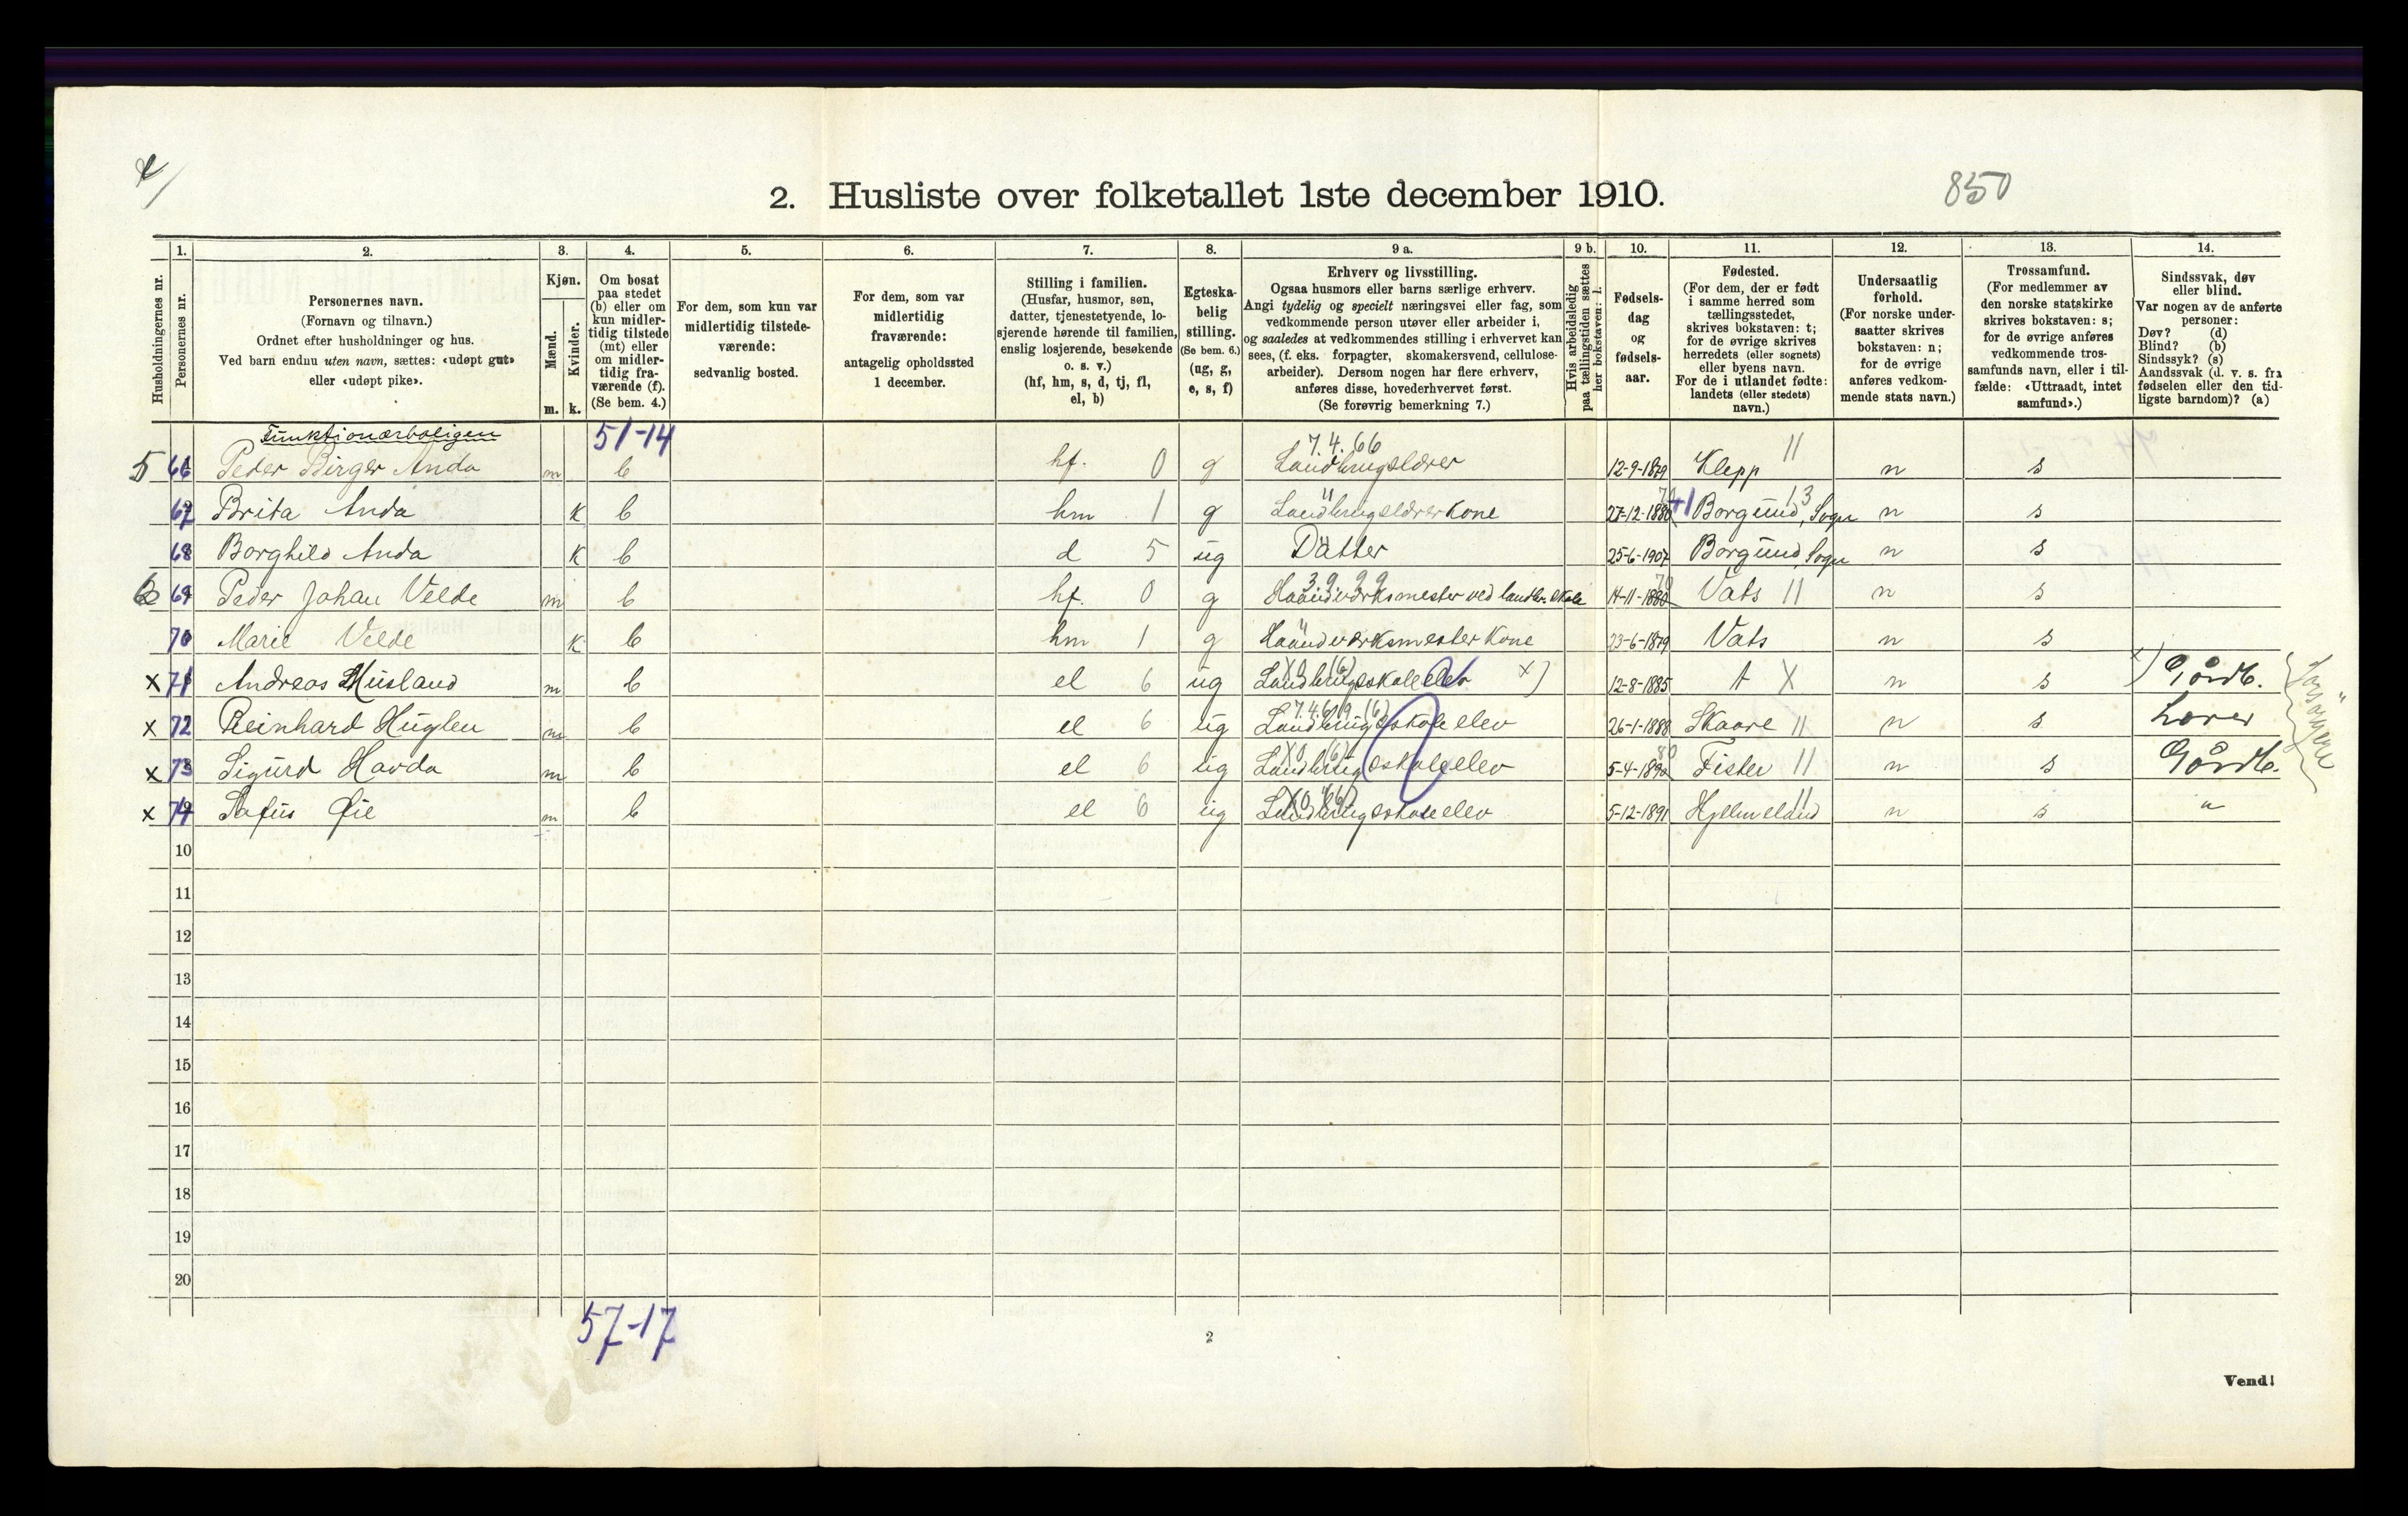 850
2. Husliste over folketallet 1ste december 1910.
Husholdningernes nr.
1.
Personernes nr.
2.
Personernes navn.
(Fornavn og tilnavn.)
Ordnet efter husholdninger og hus.
Ved barn endnu uten navn, sættes: «udøpt gut»
eller «udøpt pike».
3.
Kjøn.
Mænd.
Kvinder.
m. k.
4.
Om bosat
paa stedet
(b) eller om
kun midler-
tidig tilstede
(mt) eller
om midler-
tidig fra-
værende (f).
(Se bem. 4.)
5.
For dem, som kun var
midlertidig tilstede-
værende:
sedvanlig bosted.
6.
For dem, som var
midlertidig
fraværende:
antagelig opholdssted
1 december.
7.
Stilling i familien.
(Husfar, husmor, søn,
datter, tjenestetyende, lo-
sjerende hørende til familien,
enslig losjerende, besøkende
o. s. v.)
(hf, hm, s, d, tj, fl,
el, b)
8.
Egteska-
belig
stilling.
(Se bem. 6.)
(ug, g,
e, s, f)
9 a.
Erhverv og livsstilling.
Ogsaa husmors eller barns særlige erhverv.
Angi tydelig og specielt næringsvei eller fag, som
vedkommende person utøver eller arbeider i,
og saaledes at vedkommendes stilling i erhvervet kan
sees, (f. eks. forpagter, skomakersvend, cellulose-
arbeider). Dersom nogen har flere erhverv,
anføres disse, hovederhvervet først.
(Se forøvrig bemerkning 7.)
9 b.
Hvis arbeidsledig
paa tællingstiden sættes
her bokstaven: l.
10.
Fødsels-
dag
og
fødsels-
aar.
11.
Fødested.
(For dem, der er født
i samme herred som
tællingsstedet,
skrives bokstaven: t;
for de øvrige skrives
herredets (eller sognets)
eller byens navn.
For de i utlandet fødte:
landets (eller stedets)
navn.)
12.
Undersaatlig
forhold.
(For norske under-
saatter skrives
bokstaven: n;
for de øvrige
anføres vedkom-
mende stats navn.)
13.
Trossamfund.
(For medlemmer av
den norske statskirke
skrives bokstaven: s;
for de øvrige anføres
vedkommende tros-
samfunds navn, eller i til-
fælde: «Uttraadt, intet
samfund».)
14.
Sindssvak, døv
eller blind.
Var nogen av de anførte
personer:
Døv? (d)
Blind? (b)
Sindssyk? (s)
Aandssvak (d. v. s. fra
fødselen eller den tid-
ligste barndom)? (a)
Funktionærboligen 51-14 7.4.66
5 66 Peder Birger Anda m b hf. 0 g Landbrugslærer 12-9-1879 Klepp 11 n s
67 Brita Anda k b hm 1 g Landbrugslærerkone 27-12-1880 +1 Borgund, Sogn 13 n s
68 Borghild Anda k b d 5 ug Datter 25-6-1907 Borgund, Sogn n s
6 69 Peder Johan Velde m b hf. 0 g Haandværksmester ved landbr. skole 14-11-1880 Vats 11 n s
70 Marie Velde k b hm 1 g Haandværksmester Kone 23-6-1879 Vats n s
x 71 Andreas Husland m b el 6 ug Landbrugsskoleelev x) 12-8-1885 t X n s x) Gårdb.
x 72 Reinhard Huglen m b el 6 ug Landbrugsskoleelev 26-1-1888 Skaare 11 n s Lærer
x 73 Sigurd Havda m b el 6 ug Landbrugsskoleelev 5-4-1890 Fister 11 n s Gårdb.
x 74 Safus Øie m b el 6 ug Landbrugsskoleelev 5-12-1891 Hjelmeland 11 n s "
Forsørgere
10
11
12
13
14
15
16
17
18
19
20
57-17
2
Vend!